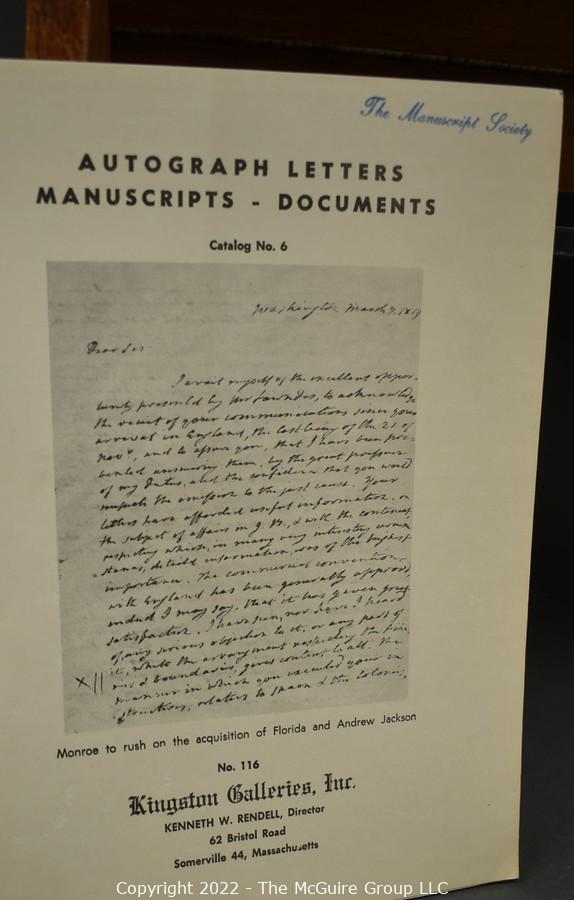 The Manuscript Society
AUTOGRAPH LETTERS
MANUSCRIPTS - DOCUMENTS
Catalog No. 6
Washington March 7. 1819
Dear Sir
I avail myself of the excellent oppor-
tunity presented by Mr Lowndes, to acknowledge
the receit of your communications since your
arrival in England, the last being of the 21 of
Novr, and to assure you, that I have been pre-
vented answering them, by the great pressure
of my duties, and the confidence that you would
impute the omission to the just cause. Your
letters have afforded useful information, on
the subject of affairs in G. B., & with the continent
respecting which, in many very interesting circum
stances, detaild information, was of the highest
importance. The commercial convention,
with England has been generally approvd,
indeed I may say, that it has given great
satisfaction. I have seen, nor have I heard
of, any serious objection to it, or any part of
it, while the arrangment respecting the
and boundaries, gives content to all. The
manner in which you executed your in
structions, relative to Spain & the Colonies,
Monroe to rush on the acquisition of Florida and Andrew Jackson
No. 116
Kingston Galleries, Inc.
KENNETH W. RENDELL, Director
62 Bristol Road
Somerville 44, Massachusetts
Copyright 2022 - The McGuire Group LLC